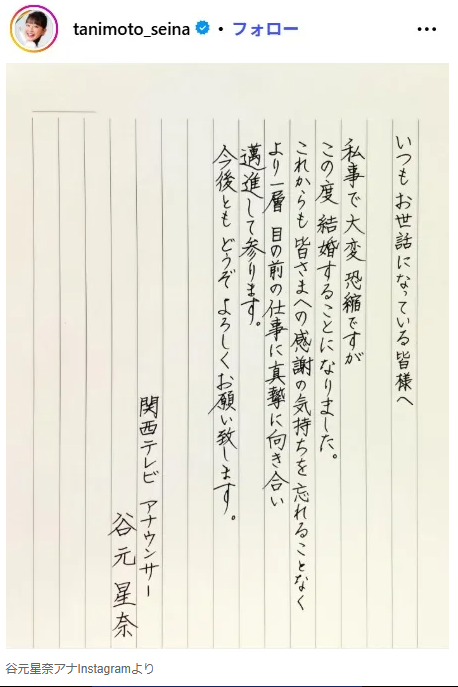 tanimoto_seina • フォロー
いつもお世話になっている皆様へ
私事で大変恐縮ですが
この度 結婚することになりました。
これからも 皆さまへの感謝の気持ちを忘れることなく
より一層 目の前の仕事に真摯に向き合い
邁進して参ります。
今後とも どうぞ よろしくお願い致します。
関西テレビ アナウンサー
谷元 星奈
谷元星奈アナInstagramより